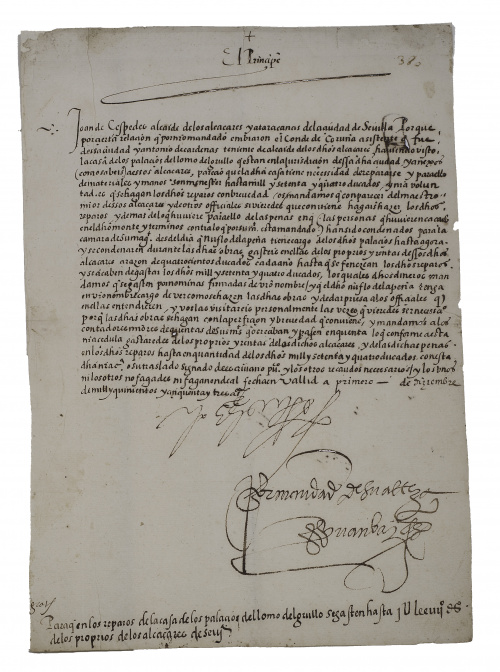 El Príncipe
38
Joan de Cespedes alcaide delos alcaçares y ataraçanas dela çiudad de Sevilla Porque
por çierta relaçion q̃ por mi mandado embiaron el Conde de Coruña asistente q̃ fue
dessa çiudad y antonio de cardenas teniente de alcaide de los dhos alcaçares, haviendo visto
la casa delos palaçios del lomo del grullo q̃ estan en la juridiçion dessa dha çiudad y anexos
como sabeis a essos alcaçares, pareçio que la dha casa tiene neçessidad de repararse y para ello
de materiales y manos son menester hasta mill y setenta y quatro ducados, y mi volun
tad es q̃ se hagan los dhos reparos con brevedad
mios dessos alcaçares y de otros offiçiales si vieredes que conviene hagais hazer los dhos
reparos y demas delo q̃ huviere para ello delas penas en q̃ las personas q̃ huvieren caçado
en el dho monte y terminos contra lo q̃ por su mt esta mandado han sido condenados para la
camara de su mag. desde el dia q̃ nuflo dela peña tiene cargo delos dhos palaçios hasta agora
y se condenaren durante las dhas obras gasteis en ellas delos proprios y rentas de essos dhos
alcaçares a razon de quatroçientos ducados cada año hasta q̃ se fenezcan los dhos reparos
y se acaben de gastar los dhos mill y setenta y quatro ducados, los quales dhos dineros man
damos q̃ se gasten por nominas firmadas de vro nombre y q̃ el dho nuflo dela peña tenga
en vro nombre cargo de ver como se hazen las dhas obras y de dar priesa a los offiçiales q̃
en ellas entendieren, y vos las visitareis personalmente las vezes q̃ vieredes ser neçessario
por q̃ las dhas obras se hagan con la perfiçion y brevedad q̃ conviene, y mandamos a los
contadores mayores de quentas de su mt q̃ reçiban y passen en quenta lo q̃ conforme a esta
mi çedula gastaredes delos proprios y rentas delos dichos alcaçares y delas dichas penas
en los dhos reparos hasta en quantidad delos dhos mill y setenta y quatro ducados, con esta
dha nra çedula o su traslado signado de escrivano pu.co y los otros recaudos neçessarios y los unos
ni los otros no fagades ni fagan ende al fecha en Vallid a primero de diziembre
de mill y quinientos y çinquenta y tres años
Yo el Prínçipe
Por mandado de su alteza
Juan Vazquez
Para q̃ en los reparos de la casa de los palaçios del lomo del grullo se gasten hasta j U lxxiiij ds
de los proprios de los alcaçares de sevª